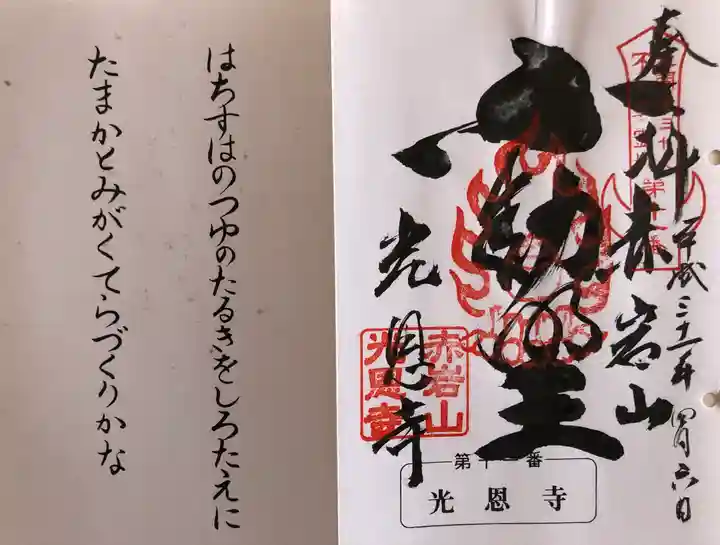 奉拝赤岩山
平成三十一年四月六日
不動明王
光恩寺
赤岩山
光恩寺
第十一番
光恩寺
はちすはのつゆのたるきをしろたえに
たまかとみがくてらづくりかな